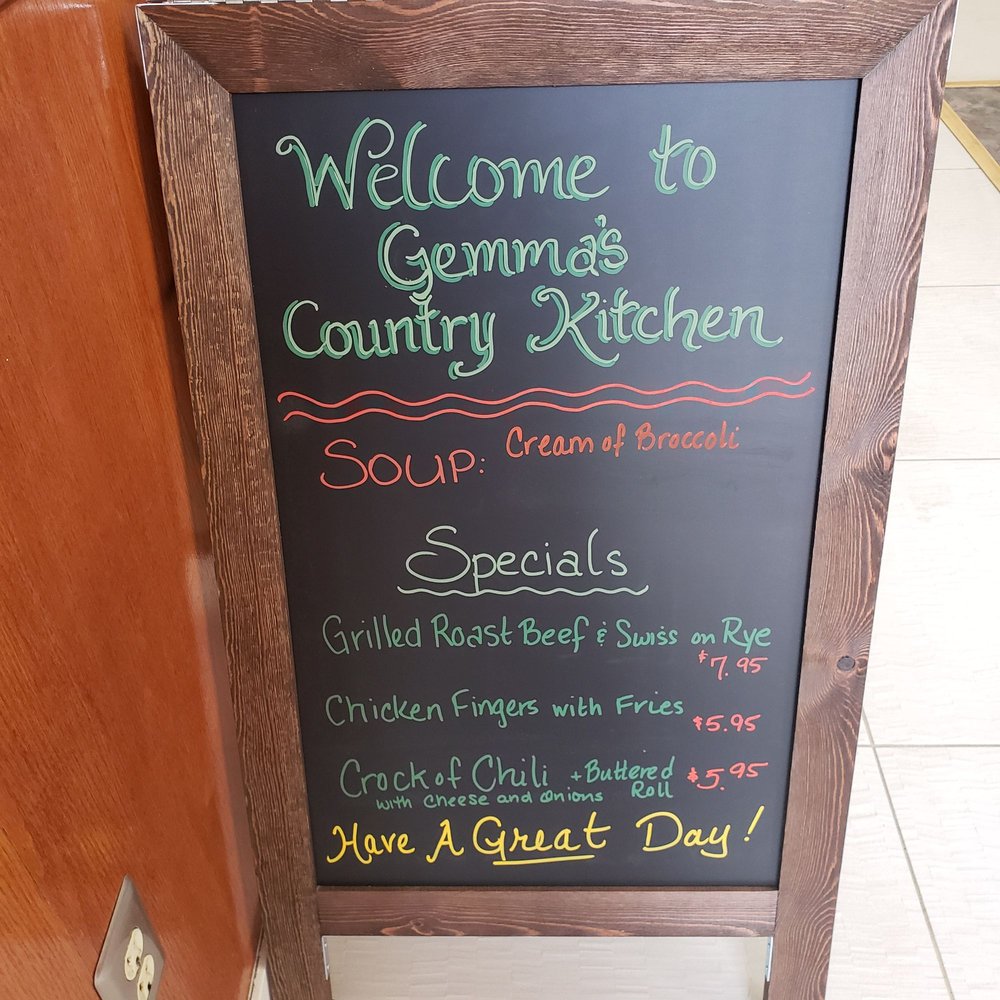 Welcome to
Gemma's
Country Kitchen
SOUP: Cream of Broccoli
Specials
Grilled Roast Beef & Swiss on Rye
$7.95
Chicken Fingers with Fries $5.95
Crock of Chili + Buttered $5.95
with cheese and onions Roll
Have A Great Day!